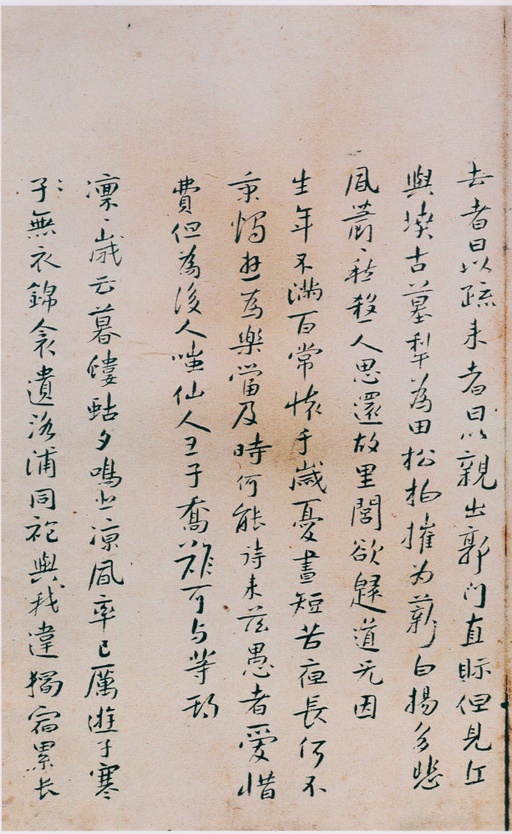 去者日以疏來者日以親出郭门直眎但見丘
與墳古墓犁為田松柏摧为薪白揚多悲
風蕭〻愁殺人思還故里閭欲歸道无因
生年不滿百常懷千歲憂晝短苦夜長何不
秉燭遊為樂當及時何能待来茲愚者愛惜
費但為後人嗤仙人王子喬難可与等期
凛〻歲云暮螻蛄夕鳴悲凉風率已厲遊子寒
〻無衣錦衾遺洛浦同袍與我違獨宿累长